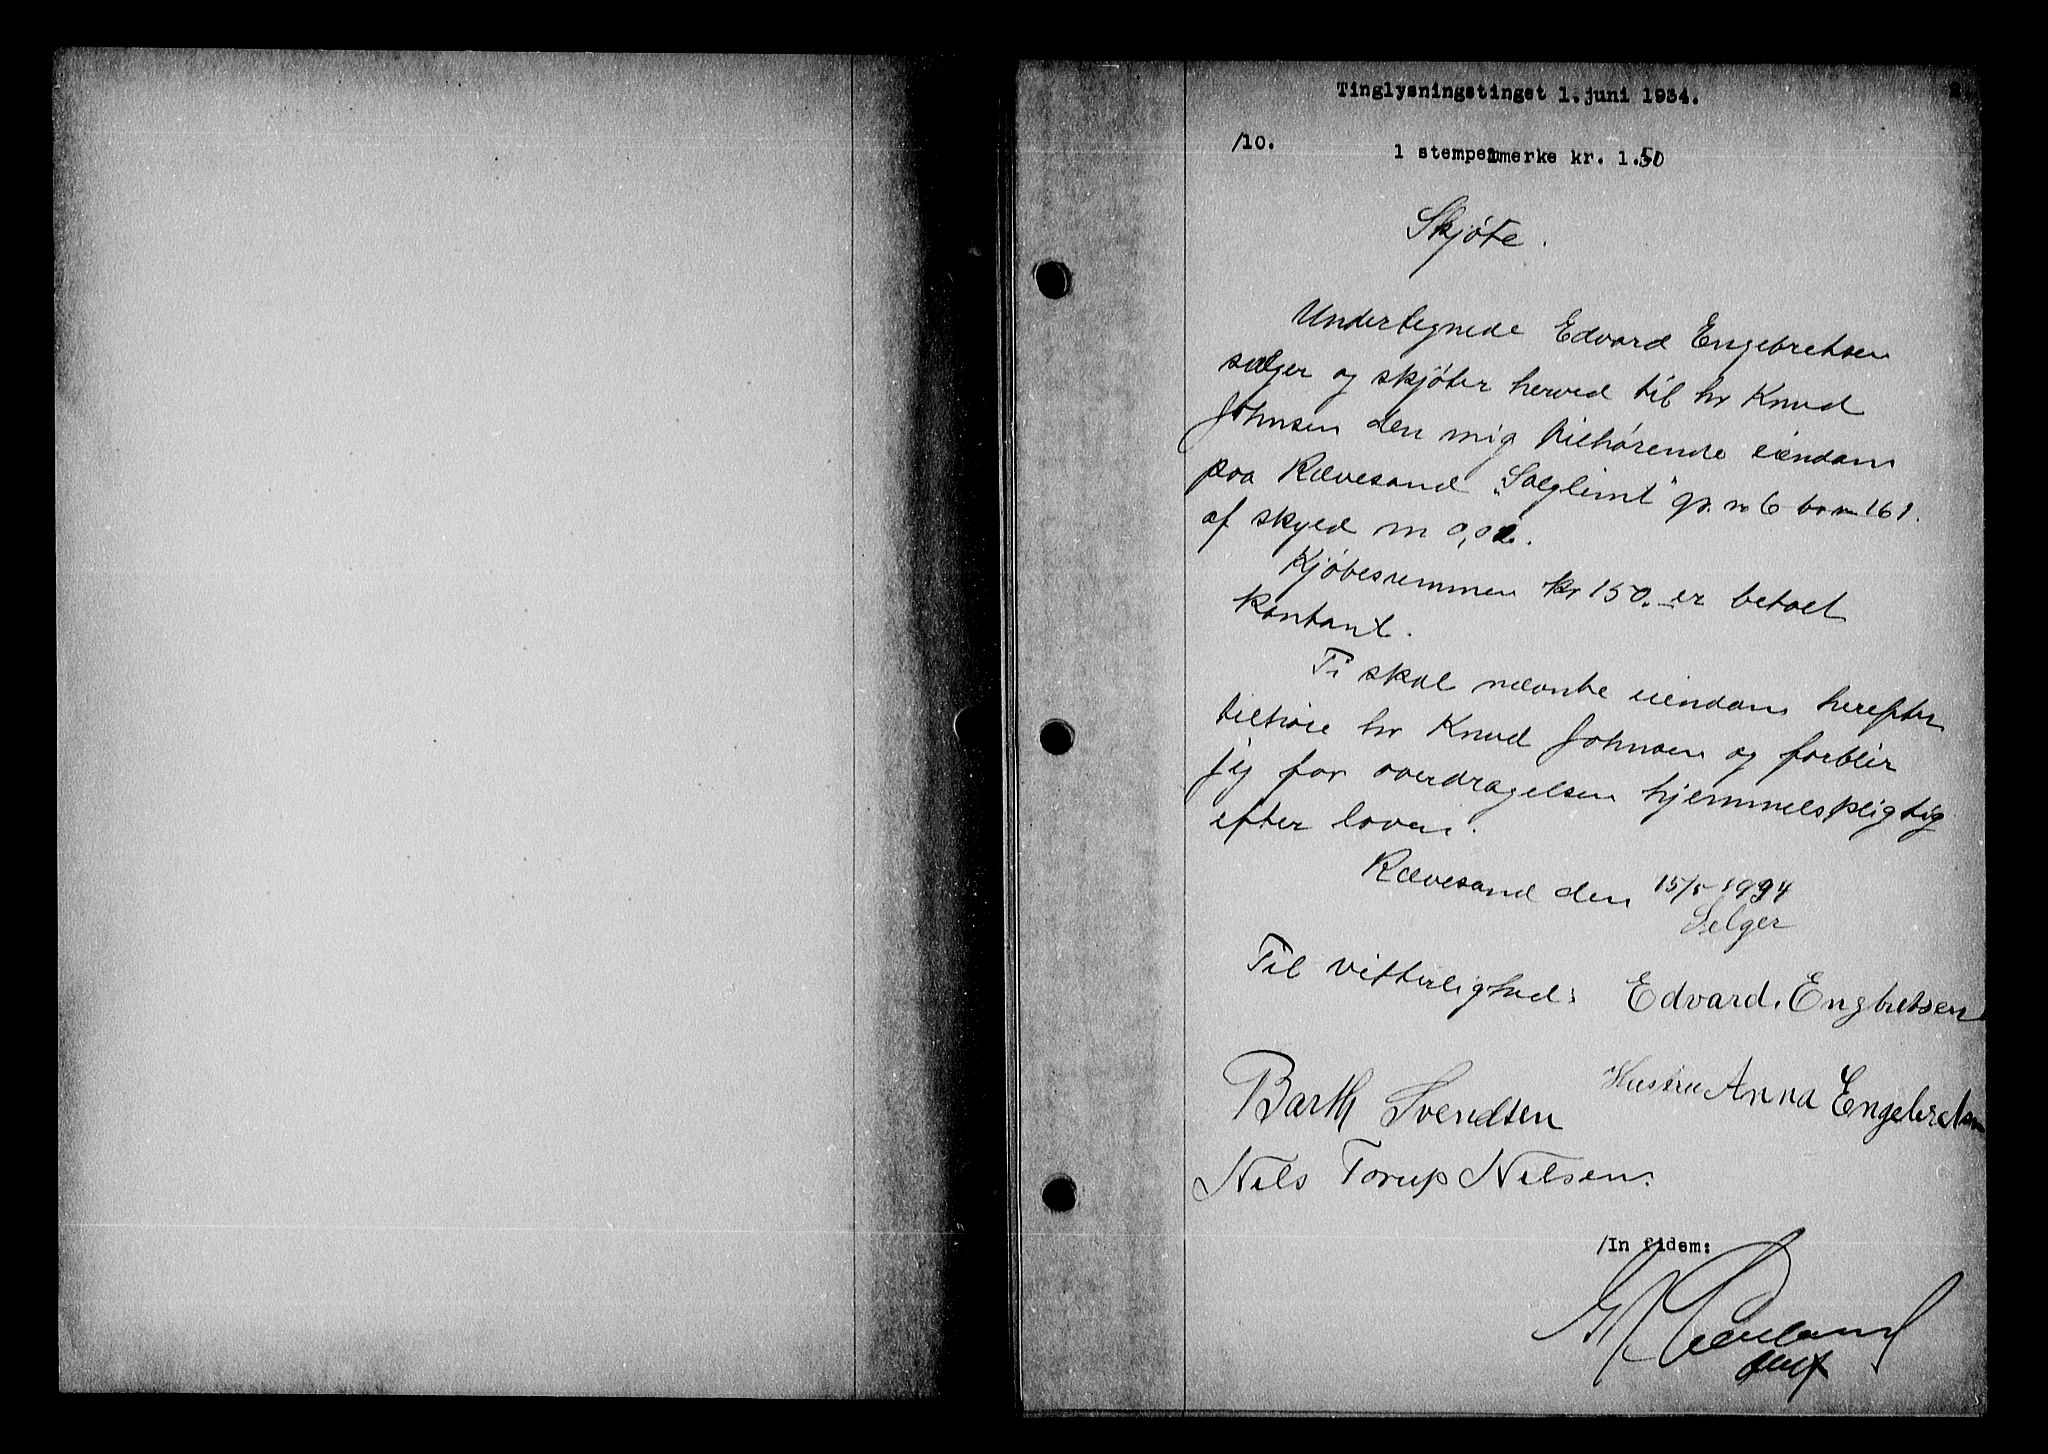 Tinglysningstinget 1. juni 1934.
2.
/10.
1 stempelmerke kr. 1.50
Skjøte.
Undertegnede Edvard Engebretsen
sælger og skjøter herved til hr Knud
Johnsen den mig tilhørende eiendom
paa Rævesand "Solglimt" gr. no 6 br no 161.
af skyld m 0,02.
Kjøbesummen kr 150.- er betalt
kontant.
Ti skal nævnte eiendom herefter
tilhøre hr Knud Johnsen og forblir
jeg for overdragelsen hjemmelspligtig
efter loven.
Rævesand den 15/5 1934
Selger
Til vitterlighed: Edvard. Engbretsen
Hustru Anna Engebretsen
Barth Svendsen
Nils Torup Nilsen.
/In fidem: